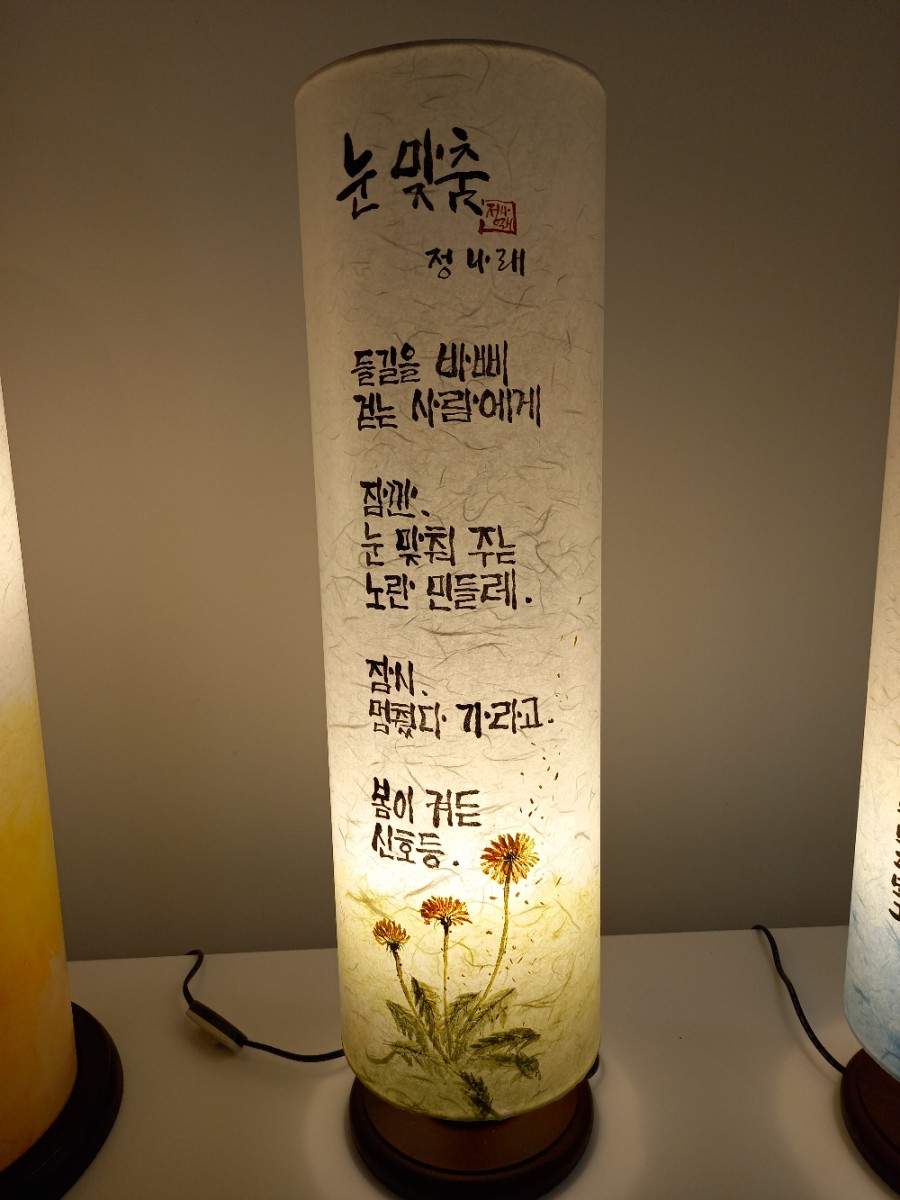 눈 맞춤
정나래
정 나 래
들길을 바삐
걷는 사람에게
잠깐.
눈 맞춰 주는
노란 민들레.
잠시.
멈췄다 가라고.
봄이 켜든
신호등.